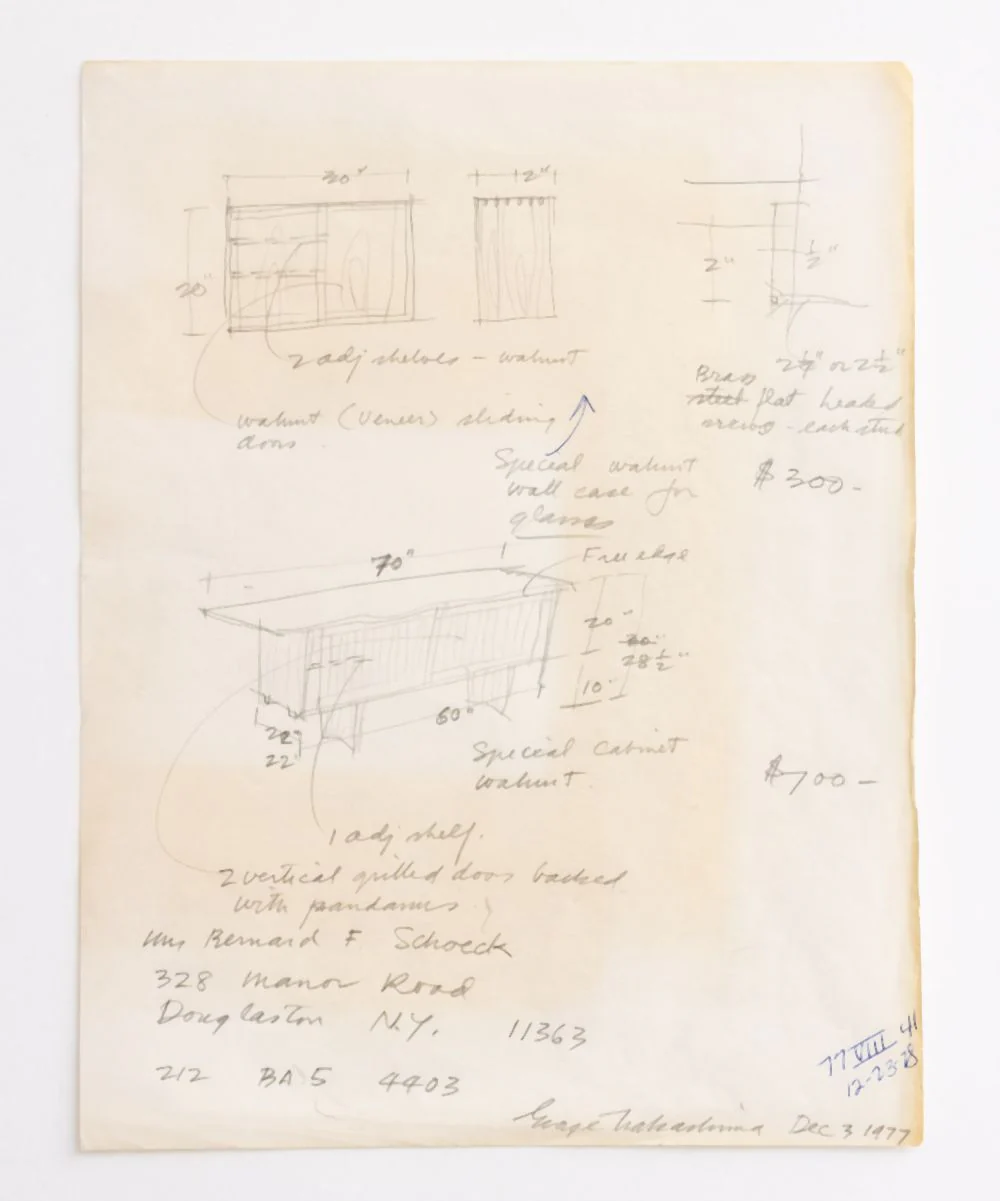 30"
12"
20"
2"
1/2"
2 adj shelves – walnut
2 1/4" or 2 1/2"
Brass
steel flat headed
screws – each stud
walnut (veneer) sliding
doors
Special walnut
wall case for
glasses
$300–
70"
Free edge
20"
30"
28 1/2"
10"
60"
22"
22"
Special Cabinet
walnut
$700–
1 adj shelf.
2 vertical grilled doors backed
with pandanus
Mrs Bernard F. Schoeck
328 Manor Road
Douglaston N.Y. 11363
212 BA 5 4403
77 VIII 41
12-23-78
George Nakashima Dec 3 1977